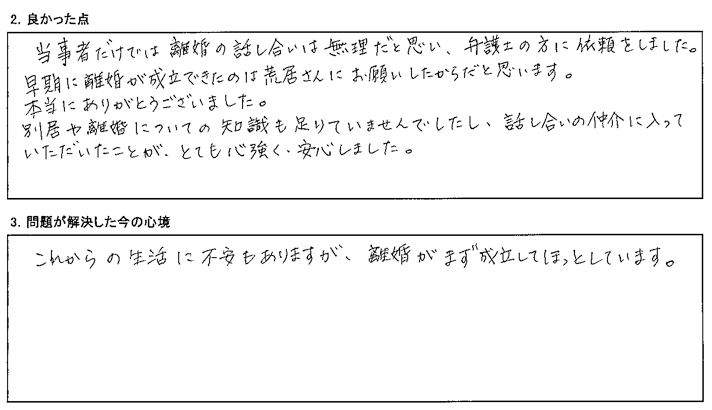 2. 良かった点
当事者だけでは離婚の話し合いは無理だと思い、弁護士の方に依頼をしました。
早期に離婚が成立できたのは荒居さんにお願いしたからだと思います。
本当にありがとうございました。
別居や離婚についての知識も足りていませんでしたし、話し合いの仲介に入って
いただいたことが、とても心強く、安心しました。
3. 問題が解決した今の心境
これからの生活に不安もありますが、離婚がまず成立してほっとしています。